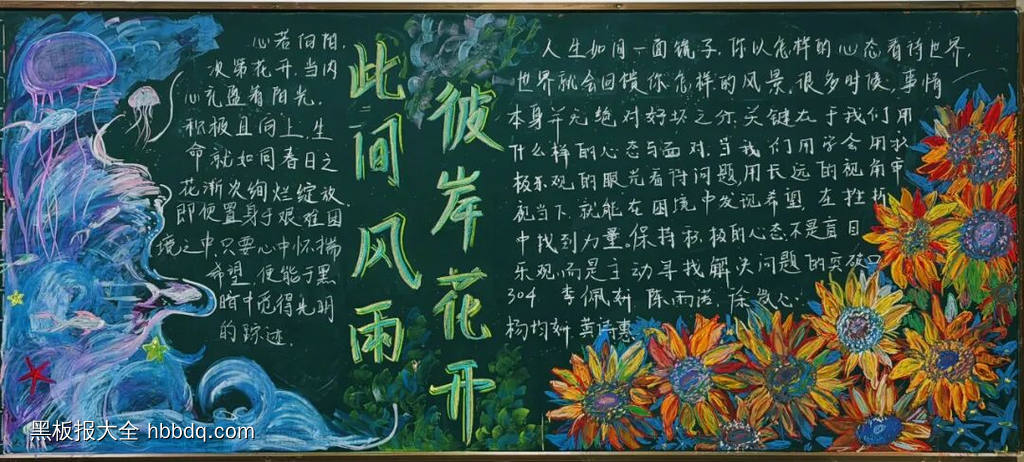 心若向阳,
次第花开.当内
心充盈着阳光.
积极且向上,生
命就如同春日之
花渐次绚烂绽放.
即便置身于艰难困
境之中,只要心中怀揣
希望,便能于黑
暗中觅得光明
的踪迹.
此间风雨
彼岸花开
人生如同一面镜子.你以怎样的心态看待世界,
世界就会回馈你怎样的风景.很多时候,事情
本身并无绝对好坏之分.关键在于我们用
什么样的心态与面对.当我们用学会用积
极乐观的眼光看待问题,用长远的视角审
视当下.就能在困境中发现希望.在挫折
中找到力量。保持积极的心态不是盲目
乐观,而是主动寻找解决问题的突破口
304 李佩 陈雨 徐 心.
杨均 黄诗惠
黑板报大全 hbbdq.com